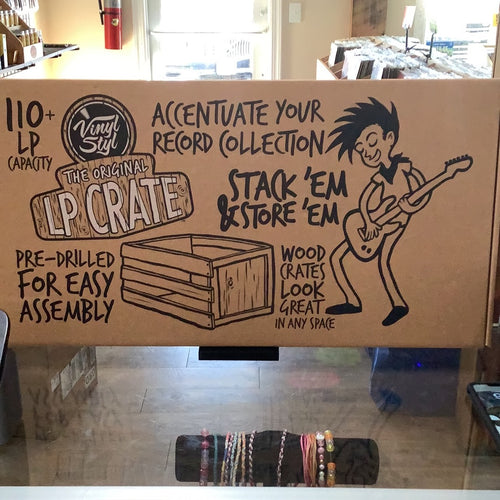 110+
LP
CAPACITY
Vinyl
Styl
THE ORIGINAL
LP CRATE
ACCENTUATE YOUR
RECORD COLLECTION
STACK 'EM
& STORE 'EM
PRE-DRILLED
FOR EASY
ASSEMBLY
WOOD
CRATES
LOOK
GREAT
IN ANY SPACE